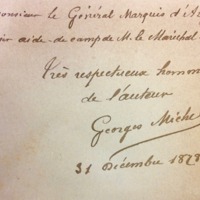 onsieur le Général Marquis d'A
aide-de-camp de M. le Maréchal
Très respectueux homm
de l'auteur
Georges Miche
31 Décembre 187